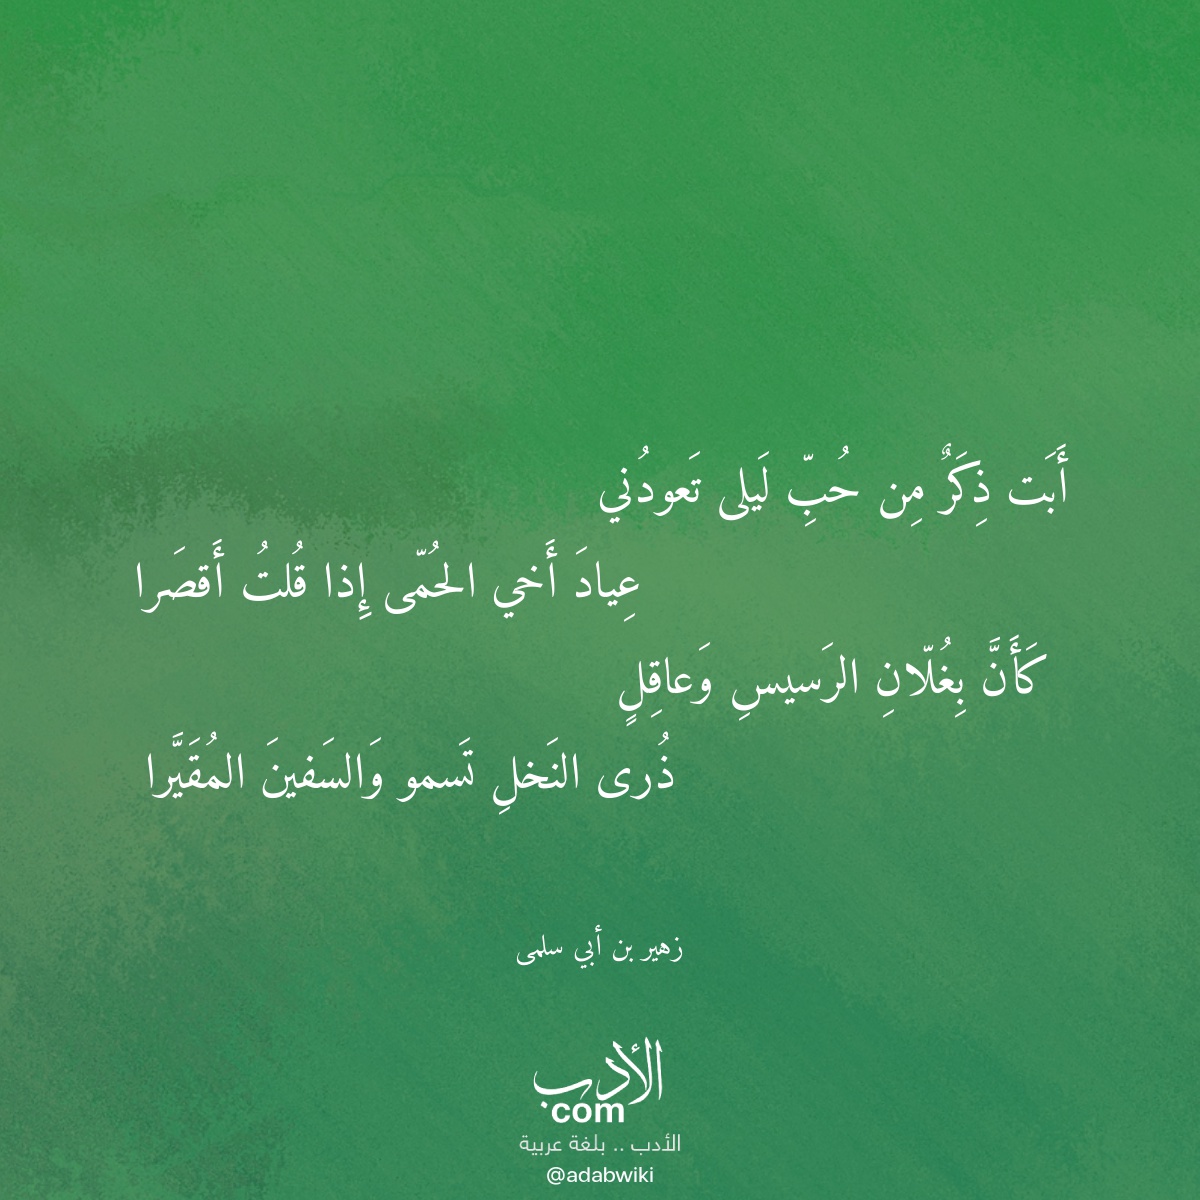 أَبَت ذِكَرٌ مِن حُبِّ لَيلى تَعودُني
عِيادَ أَخي الحُمّى إِذا قُلتُ أَقصَرا
كَأَنَّ بِغُلّانِ الرَسيسِ وَعاقِلٍ
ذُرى النَخلِ تَسمو وَالسَفينَ المُقَيَّرا
زهير بن أبي سلمى
الأدب
com
الأدب .. بلغة عربية
@adabwiki